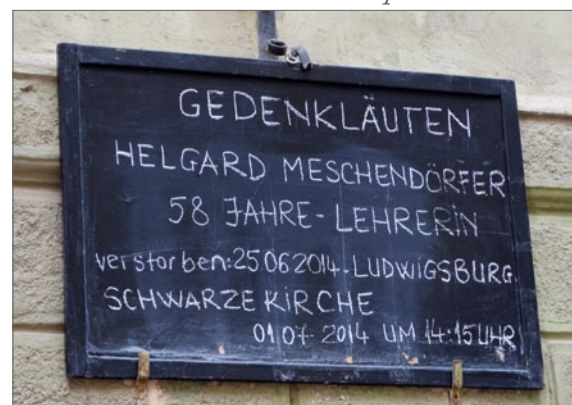 GEDENKLÄUTEN
HELGARD MESCHENDÖRFER
58 JAHRE - LEHRERIN
verstorben: 25.06.2014. LUDWIGSBURG.
SCHWARZE KIRCHE
01.07.2014 UM 14:15 UHR